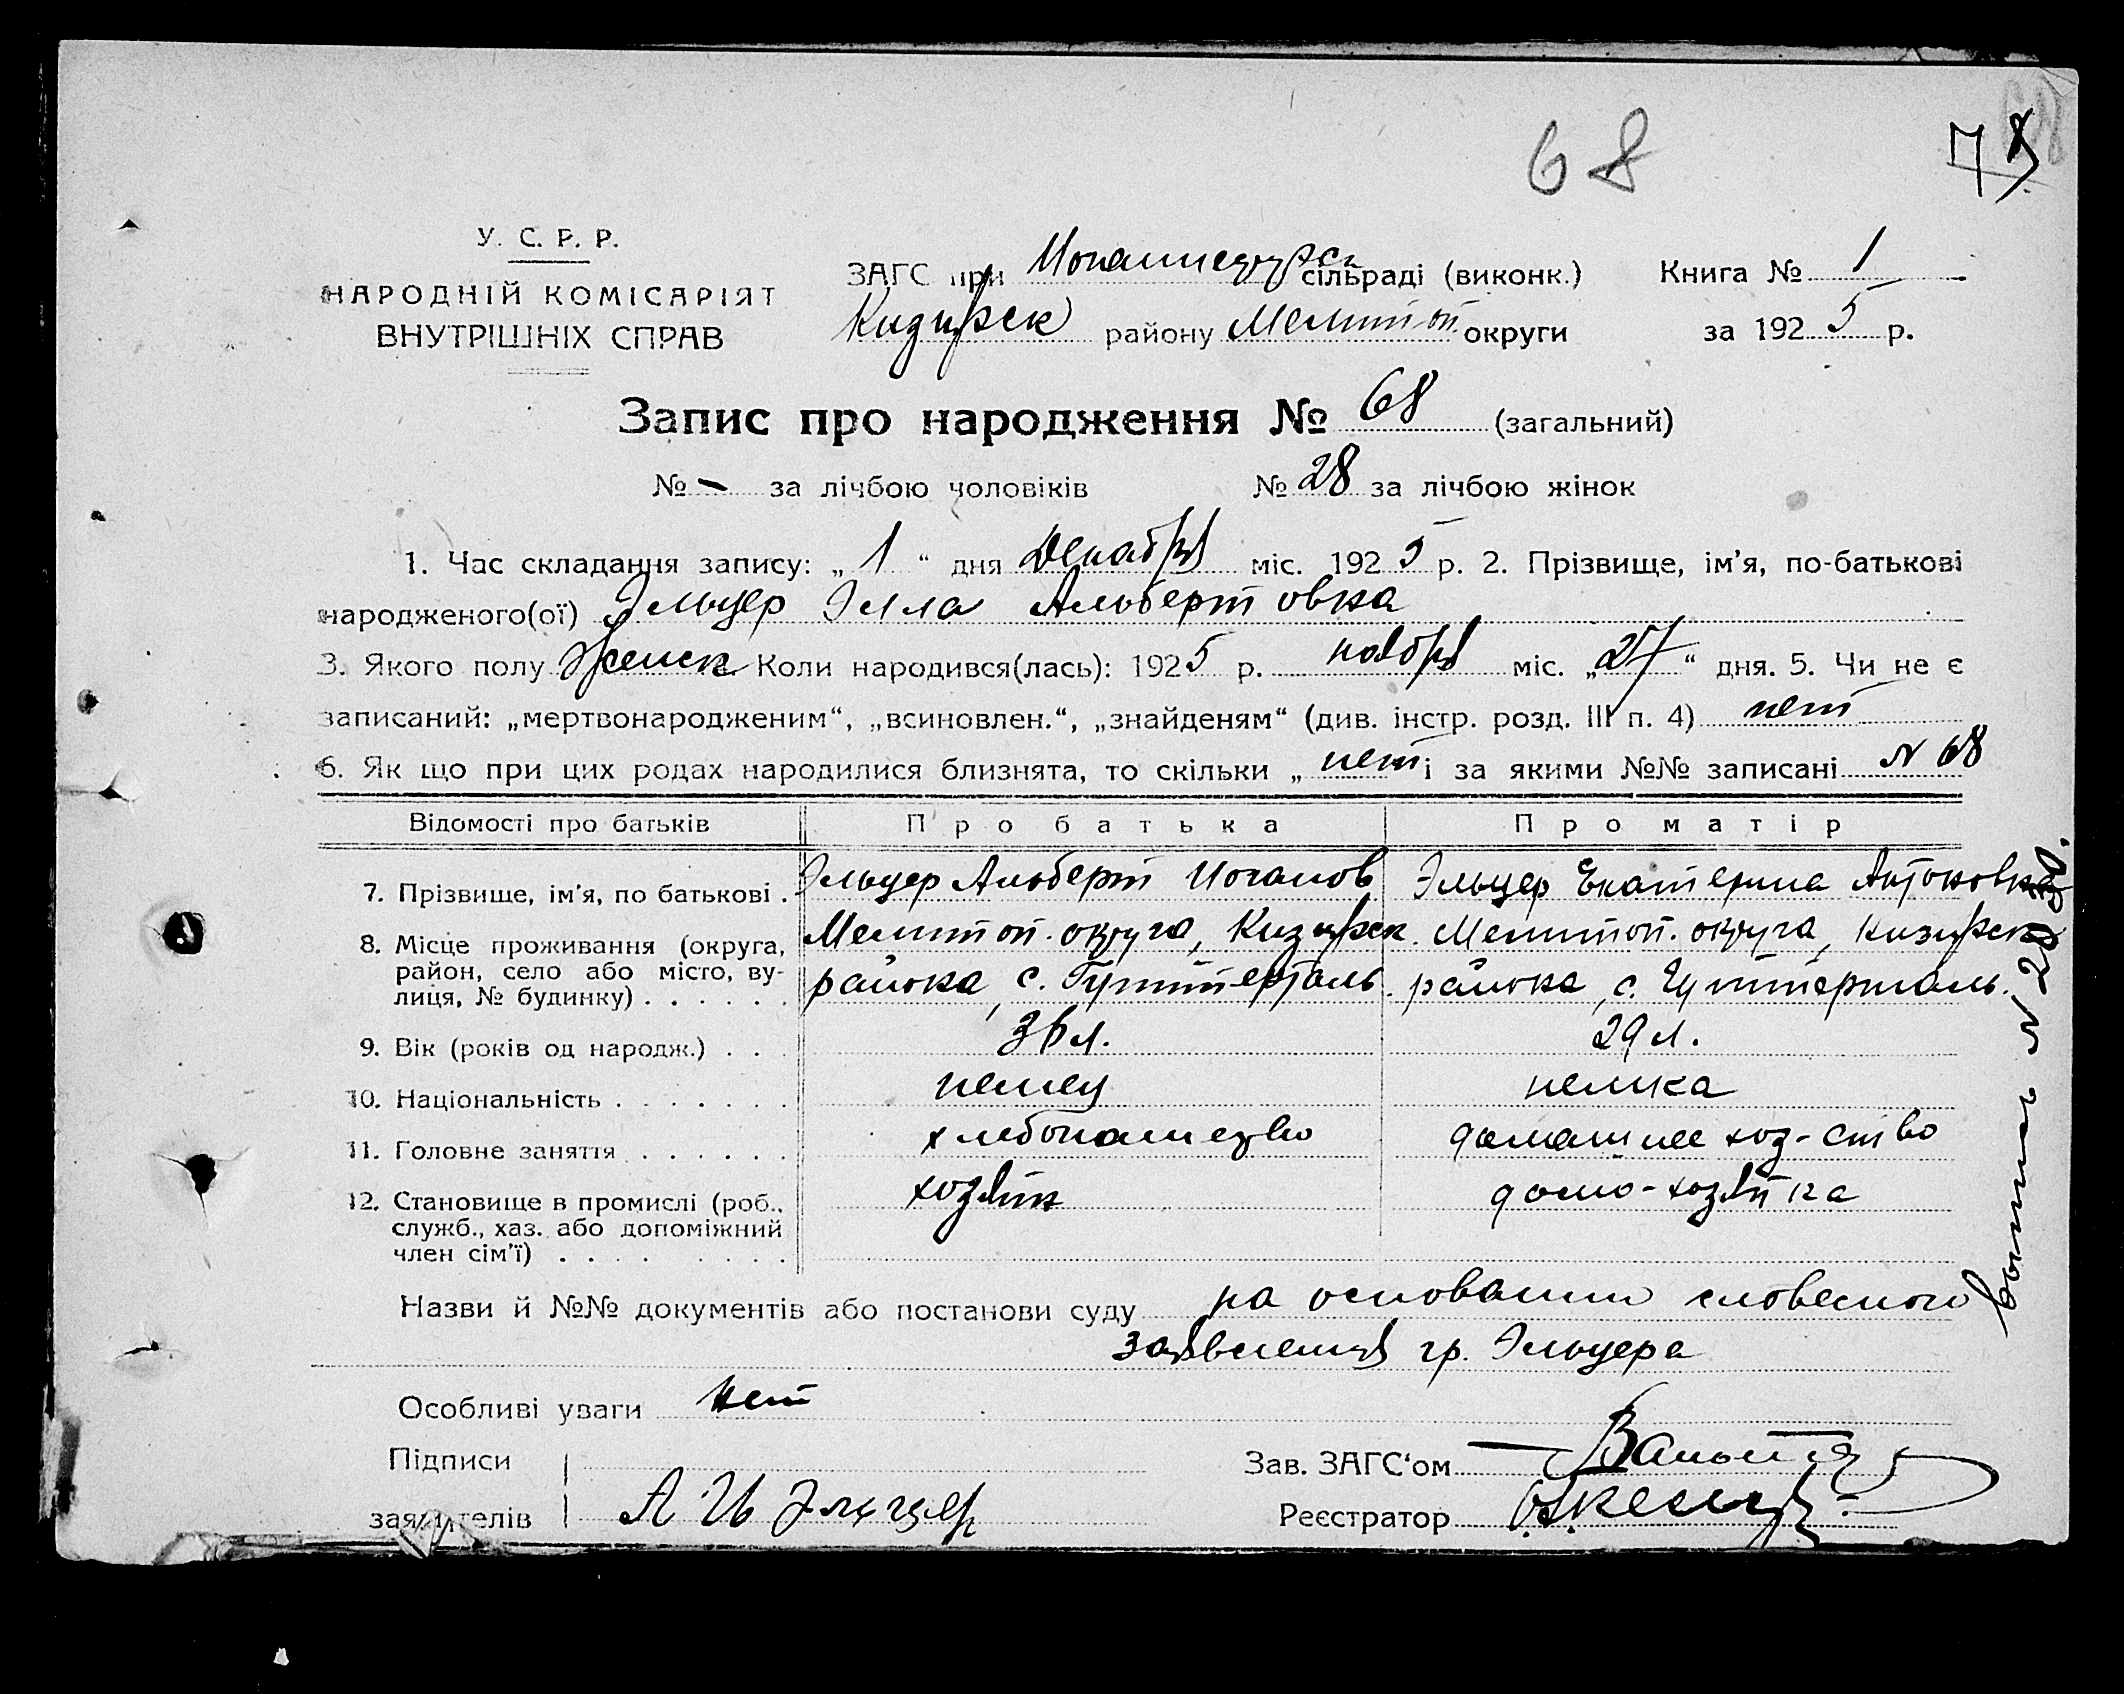 68
У. С. Р. Р.
НАРОДНІЙ КОМІСАРІЯТ
ВНУТРІШНІХ СПРАВ
ЗАГС при сільраді (виконк.) Книга № 1
Кизиярск району Мелитоп. округи за 1925 р.
Запис про народження № 68 (загальний)
№ - за лічбою чоловіків № 28 за лічбою жінок
1. Час складання запису: „ 1 “ дня Декабря міс. 1925 р. 2. Прізвище, ім’я, по-батькові
народженого(ої) Эльцер Элла Альбертовна
3. Якого полу Женск. Коли народився(лась): 1925 р. ноября міс. „27“ дня. 5. Чи не є
записаний: „мертвонародженим“, „всиновлен.“, „знайденям“ (див. інстр. розд. III п. 4) нет
6. Як що при цих родах народилися близнята, то скільки „ нет і за якими №№ записані N 68
Відомості про батьків Про батька Про матір
7. Прізвище, ім’я, по батькові . Эльцер Альберт Иоганов Эльцер Екатерина Антоновна
8. Місце проживання (округа, район, село або місто, вулиця, № будинку) . . . . . .
Мелитоп. округа, Кизиярск. района, с. Гуттерталь.
Мелитоп. округа, Кизиярск. района, с. Гуттерталь.
9. Вік (років од народж.) . . . 36 л. 29 л.
10. Національність . . . . . . . немец немка
11. Головне заняття . . . . . . хлебопашество домашнее хоз-ство
12. Становище в промислі (роб., служб., хаз. або допоміжний член сім’ї) . . . . . . . .
хозяин домо-хозяйка
Назви й №№ документів або постанови суду на основании словесного
заявления гр. Эльцера
Особливі уваги Нет
Підписи
заявителів А Ив Эльцер
Зав. ЗАГС‘ом
Реєстратор